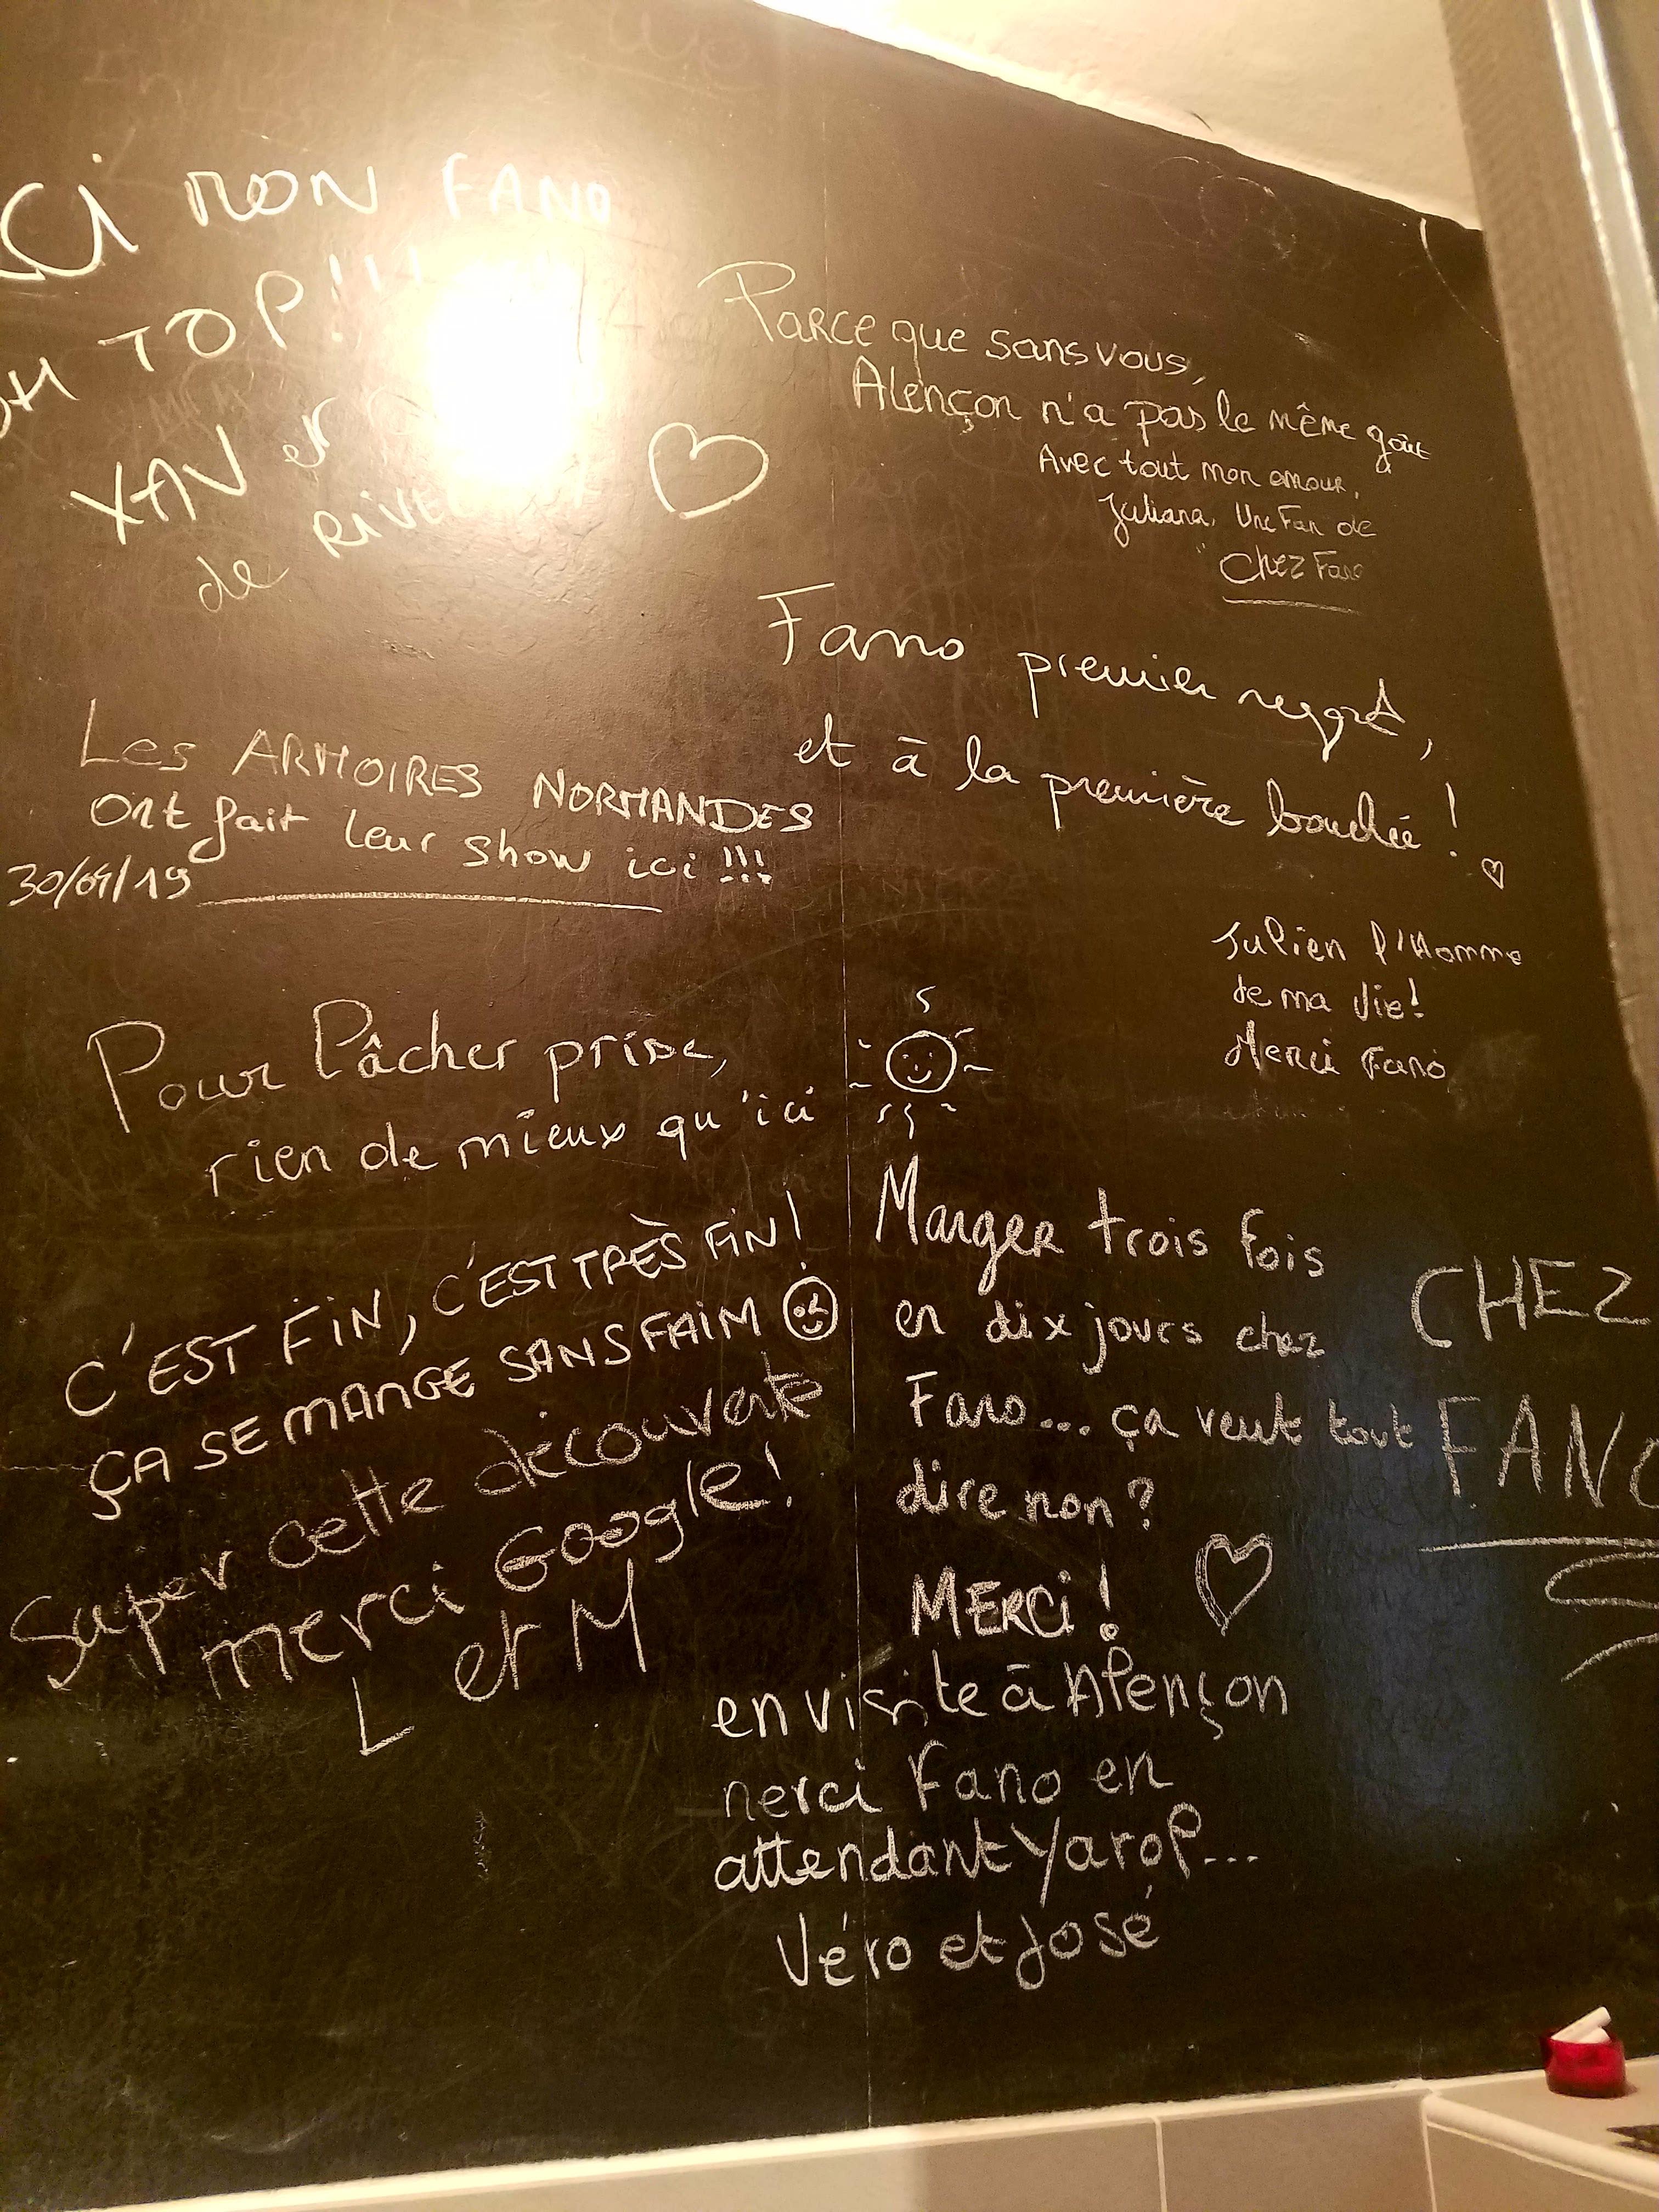 MON FANO
TOP!!!
XAV et
de
Parce que sans vous,
Alençon n'a pas le même goût
Avec tout mon amour,
Juliana, Une Fan de
"Chez Fano
Fano premier regard,
et à la première bouchée !
Les ARMOIRES NORMANDES
ont fait leur show ici !!!
30/04/19
Julien l'Homme
de ma vie!
Merci Fano
Pour lâcher prise,
rien de mieux qu'ici
C'EST FIN, C'EST TRÈS FIN!
ÇA SE MANGE SANS FAIM
Super cette découverte
merci Google!
L et M
Manger trois fois
en dix jours chez
Fano... ça veut tout
dire non?
MERCI !
CHEZ
FANO
en visite à Alençon
merci Fano en
attendant Yarol...
Véro et José